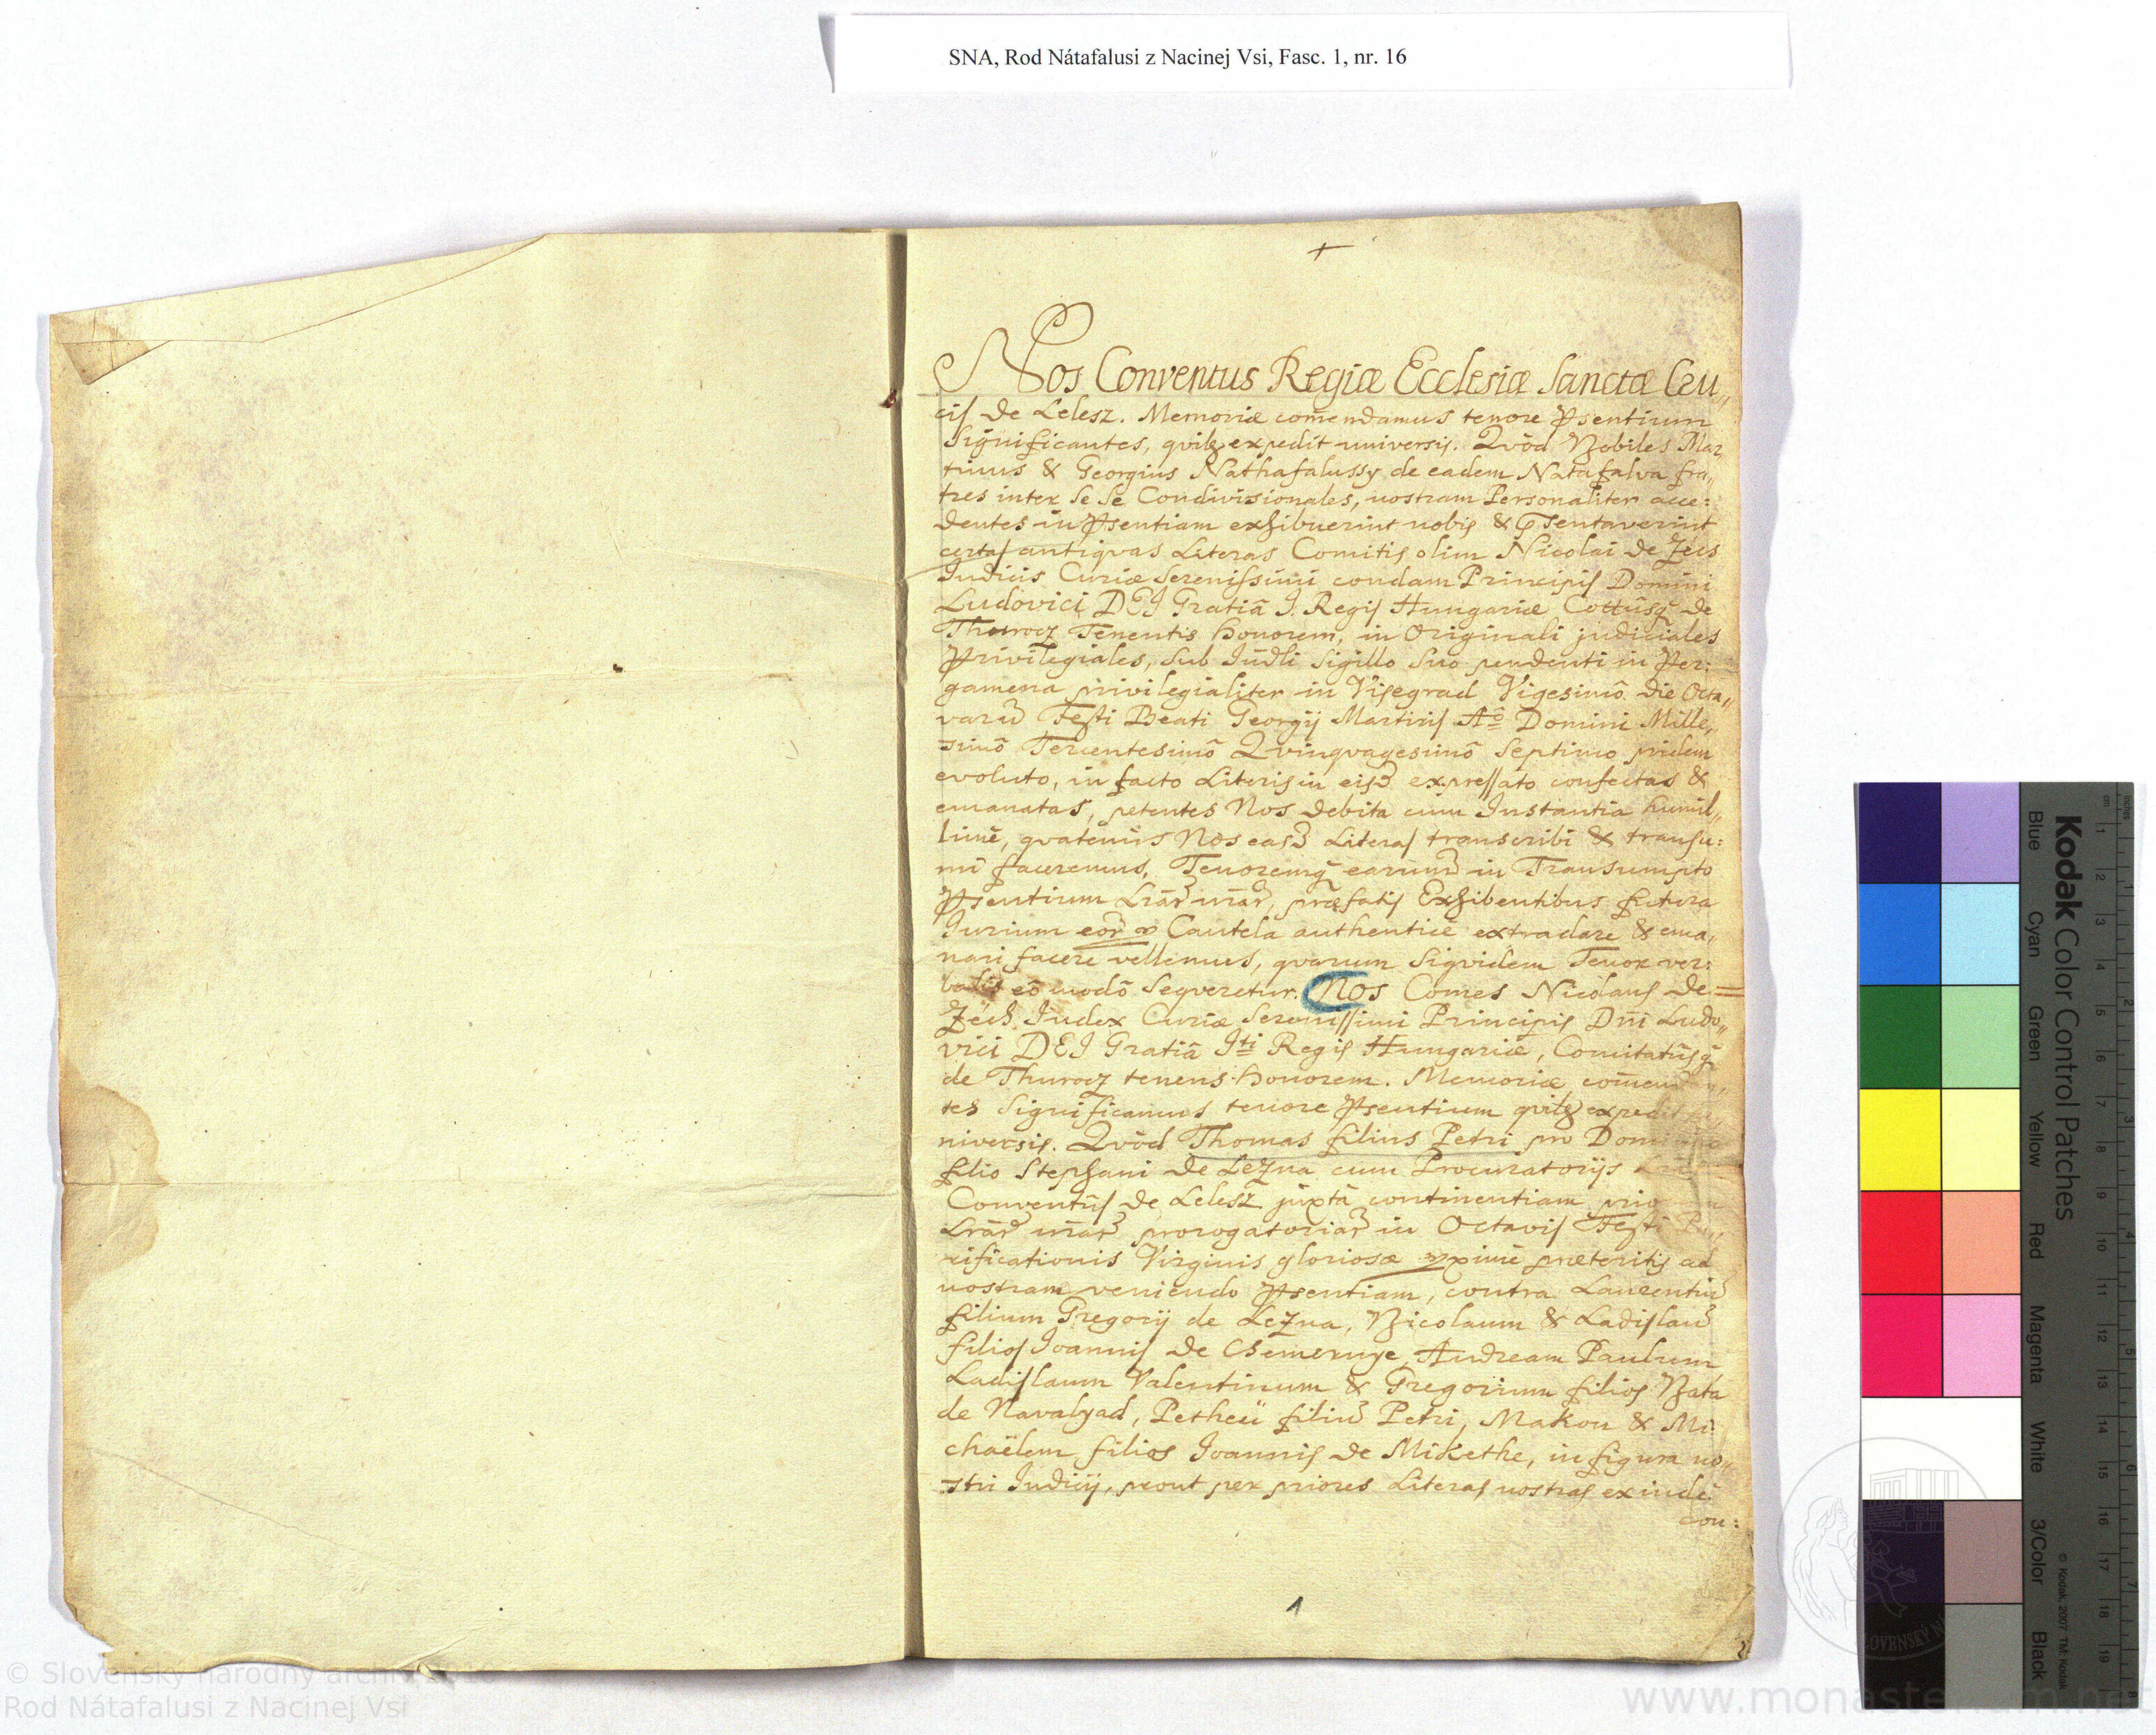 SNA, Rod Nátafalusi z Nacinej Vsi, Fasc. 1, nr. 16
+
Nos Conventus Regiæ Ecclesiæ Sanctæ Cru,,
cis de Lelesz. Memoriæ com̄endamus tenore Psentium
Significantes, quib9 expedit universis. Qvòd Nobiles Mar,,
tinus & Georgius Nathafalussy de eadem Natafalva fra,,
tres inter Se Se Condivisionales, nostram Personaliter acce:
dentes in Psentiam exhibuerint nobis & Psentaverint
certas antiqvas Literas Comitis olim Nicolai de Zécs
Judicis Curiæ Serenissimi condam Principis Domini
Ludovici DEI Gratiâ I. Regis Hungariæ Cottûsq̃ de
Thurocz Tenentis honorem, in Originali judiciales
Privilegiales, Sub Judli Sigillo Suo pendenti in Per:
gamena privilegialiter in Visegrad Vigesimô die Octa,,
varũ Festi Beati Georgij Martiris Aõ Domini Mille,,
simô Tercentesimô Qvinqvagesimô Septimo pridem
evoluto, in facto Literis in eisd expressato confectas &
emanatas, petentes Nos debita cum Instantia humil,,
limè, qvatenùs Nos easd Literas transcribi & transu:
mi faceremus, Tenoremq̃ earumd in Transumpto
Psentium Lrãr nrãr, præfatis Exhibentibus futura
Jurium eor̃ pro Cautela authenticè extradare & ema,,
nari facere vellemus, qvarum Siqvidem Tenor ver:
balis eô modô Seqveretur. Nos Comes Nicolaus de
Zéch Judex Curiæ Serenissimi Principis Dni Ludo,,
vici DEI Gratiâ Iti Regis Hungariæ, Comitatûsq̃
de Thurocz tenens honorem. Memoriæ com̄en
tes Significamus tenore Psentium quib9 expedit
niversis. Qvòd Thomas filius Petri pro Dom
filio Stephani de Lezna cum Procuratorijs
Conventûs de Lelesz juxtà continentiam prio
Lrãr nrãr prorogatoriar in Octavis Festi Pu,,
rificationis Virginis gloriosæ pximè præteritis ad
nostram veniendo Psentiam, contra Laurentiũ
filium Gregorij de Lezna, Nicolaum & Ladislaũ
filios Joannis de Chemernye, Andream Paulum
Ladislaum Valentinum & Gregorium filios Nata
de Navalyad, Petheü filiũ Petri, Makou & Mi:
chaëlem filios Joannis de Mikethe, in figura no,,
stri Judicij, prout per priores Literas nostras exindè
con:
1
© Slovenský národný archív 2016
Rod Nátafalusi z Nacinej Vsi
www.monasterium.net
Kodak Color Control Patches
Blue Cyan Green Yellow Red Magenta White 3/Color Black
© Kodak, 2007 TM: Kodak
cm 1 2 3 4 5 6 7 8 9 10 11 12 13 14 15 16 17 18 19
inches 1 2 3 4 5 6 7 8